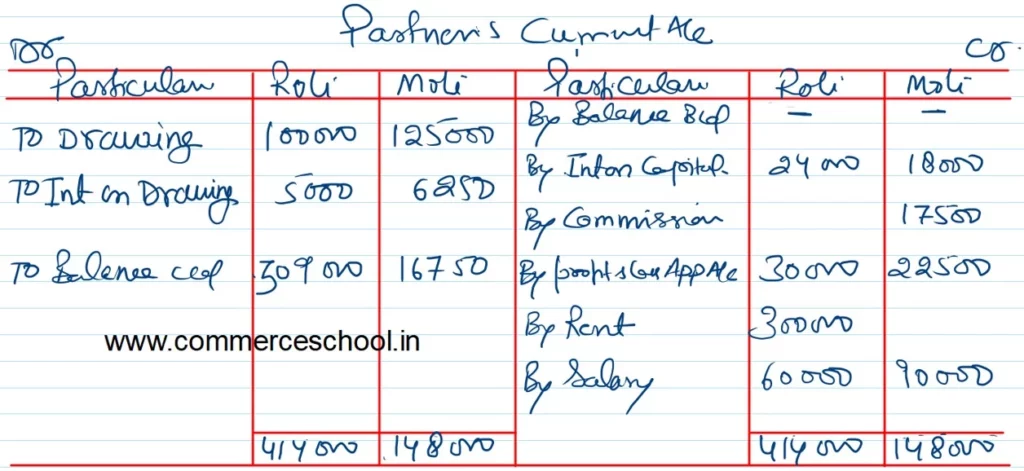 Partner's Current A/c
Dr Cr.
Particulars Roli Moli Particulars Roli Moli
By Balance B/d — —
To Drawing 100000 125000
By Int on Capital 24000 18000
To Int on Drawing 5000 6250
By Commission 17500
To Balance c/d 309000 16750 By profit & loss App A/c 30000 22500
By Rent 300000
www.commerceschool.in
By Salary 60000 90000
414000 148000 414000 148000